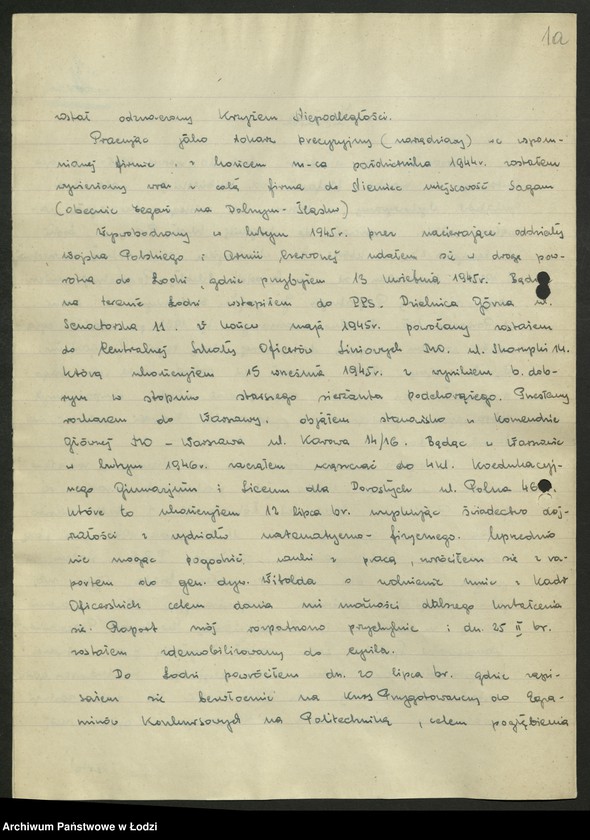 1a
został odznaczony Krzyżem Niepodległości.
Pracując jako tokarz precyzyjny (narzędziowy) w wspom-
nianej firmie z końcem m-ca października 1944r. zostałem
wywieziony wraz z całą firmą do Niemiec miejscowość Sagan
(obecnie Żegań na Dolnym-Śląsku)
Wyswobodzony w lutym 1945r. przez nacierające oddziały
Wojska Polskiego i Armii Czerwonej udałem się w drogę pow-
rotną do Łodzi, gdzie przybyłem 13 kwietnia 1945r. Będąc
na terenie Łodzi wstąpiłem do PPS. Dzielnica Górna ul.
Senatorska 11. W końcu maja 1945r. powołany zostałem
do Centralnej Szkoły Oficerów Liniowych MO. ul. Skorupki 14.
którą ukończyłem 15 września 1945r. z wynikiem b. dob-
rym w stopniu starszego sierżanta podchorążego. Przesłany
rozkazem do Warszawy, objąłem stanowisko w Komendzie
Głównej MO – Warszawa ul. Karowa 14/16. Będąc w Warszawie
w lutym 1946r. zacząłem uczęszczać do 4 kl. Koedukacyj-
nego Gimnazjum i Liceum dla Dorosłych ul. Polna 46
które to ukończyłem 12 lipca br. uzyskując świadectwo doj-
rzałości z wydziału matematyczno-fizycznego. Uprzednio
nie mogąc pogodzić nauki z pracą, zwróciłem się z ra-
portem do gen. dyw. Witolda o zwolnienie mnie z Kadr
Oficerskich celem dania mi możności dalszego kształcenia
się. Raport mój rozpatrzono przychylnie i dn. 25 II br.
zostałem zdemobilizowany do cywila.
Do Łodzi powróciłem dn. 20 lipca br. gdzie zapi-
sałem się bezzwłocznie na Kurs Przygotowawczy do Egza-
minów Konkursowych na Politechnikę, celem pogłębienia
Archiwum Państwowe w Łodzi